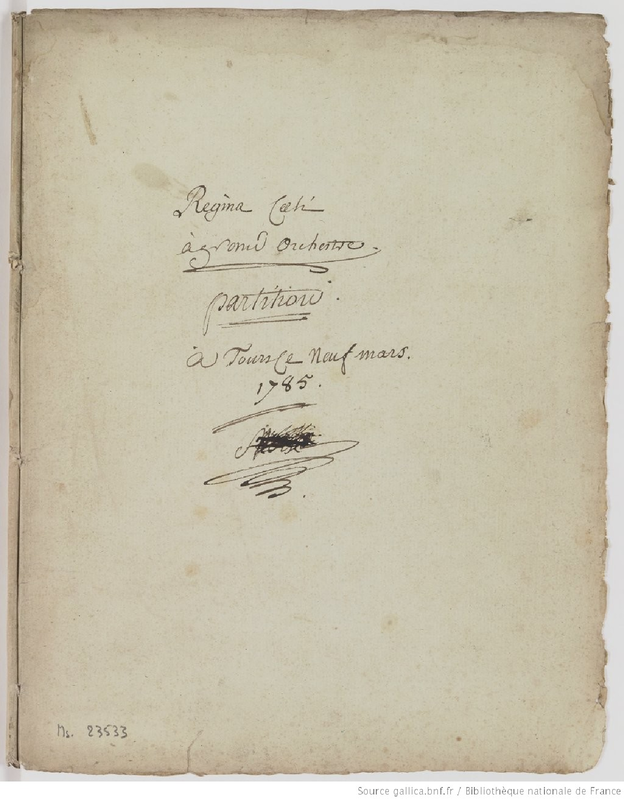 Regina Cæli
à grand Orchestre.
partition.
à Tours Ce Neuf mars.
1785.
Ms. 23533
Source gallica.bnf.fr / Bibliothèque nationale de France